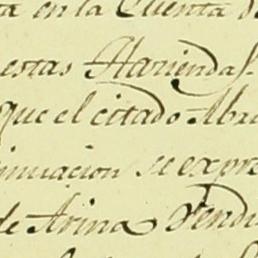 ta en la Cuenta d
estas Haziendas.
que el citado Abra
inuacion se expre
de Arina Vendi